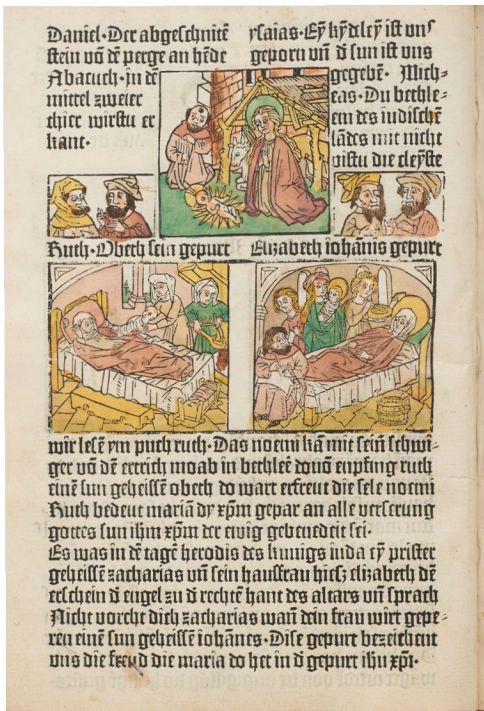 Daniel· Der abgeschnitē
stein vō dē perge an hēde
Abacuch· in dē
mittel zweier
thier wirstu er
kant·
ysaias· Eȳ kȳdley ist vnſ
geporn vn̄ d̄ sun ist vns
gegebē· Mich⸗
eas· Du bethle⸗
em des iudischē
lādes mit nicht
pistu die cleyste
Ruth· Obeth sein gepurt
Elizabeth iohānis gepurt
wir lesē ym puch ruth· Das noemi kā mit seīn schwi⸗
ger vō dē ertrich moab in bethleē douō enpfing ruth
einē sun geheissē obeth do wart erfreut die sele noemi
Ruth bedeut mariā dy xp̄m gepar an alle verserung
gottes sun ihm xp̄m der ewig gebenedeit sei·
Es was in dē tagē herodis des kunigs iuda eȳ prister
geheissē zacharias vn̄ sein hausfrau hies; elizabeth dē
erschein d̄ engel zu d̄ rechtē hant des altars vn̄ sprach
Nicht vorcht dich zacharias wan̄ dein frau wirt gepe⸗
ren einē sun geheissē iohānes· Dise gepurt bezeichent
vns die freud die maria do het in d̄ gepurt ihū xp̄i·